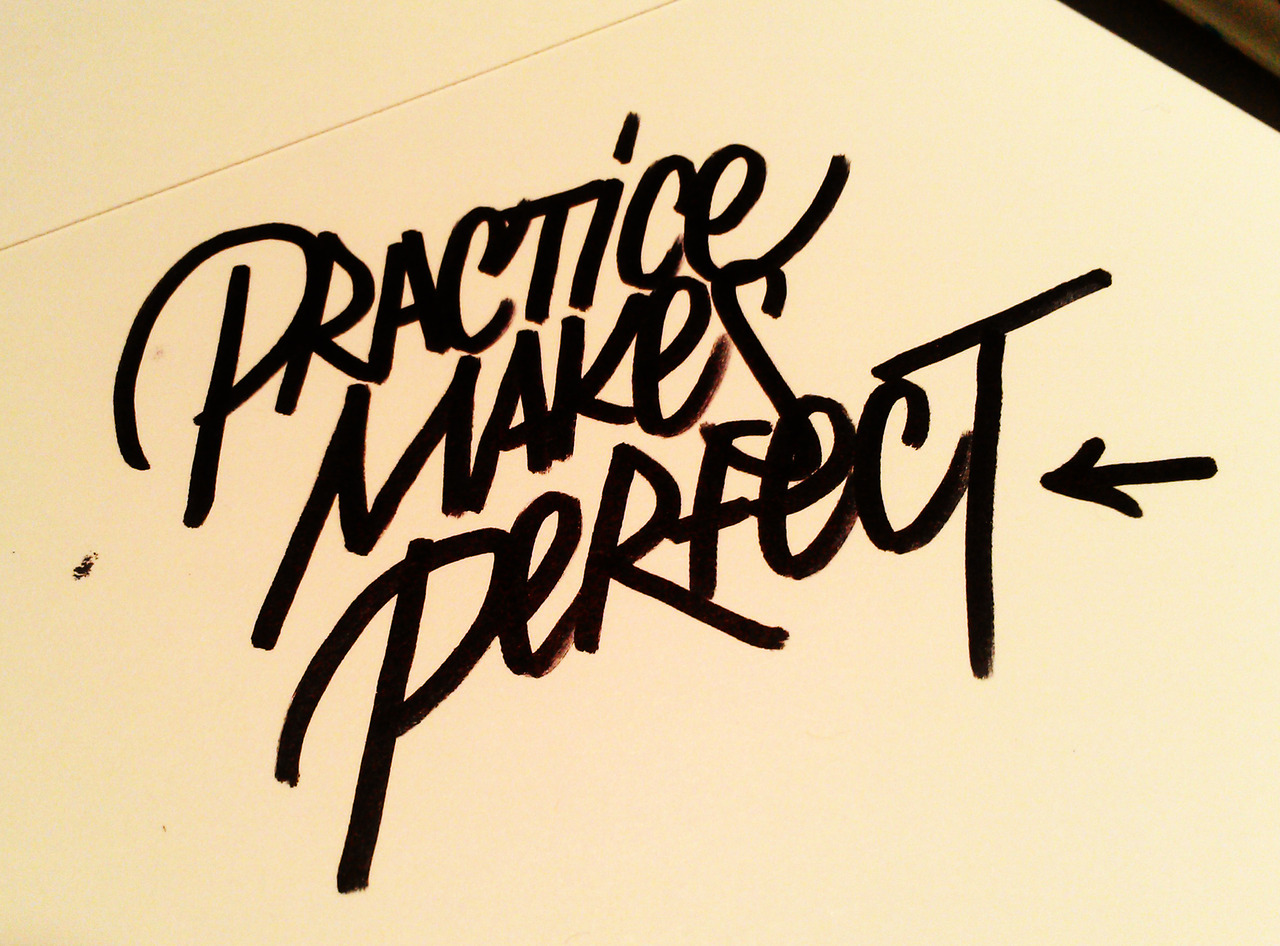 PRACTiCe
MAKes
PeRFeCT ←